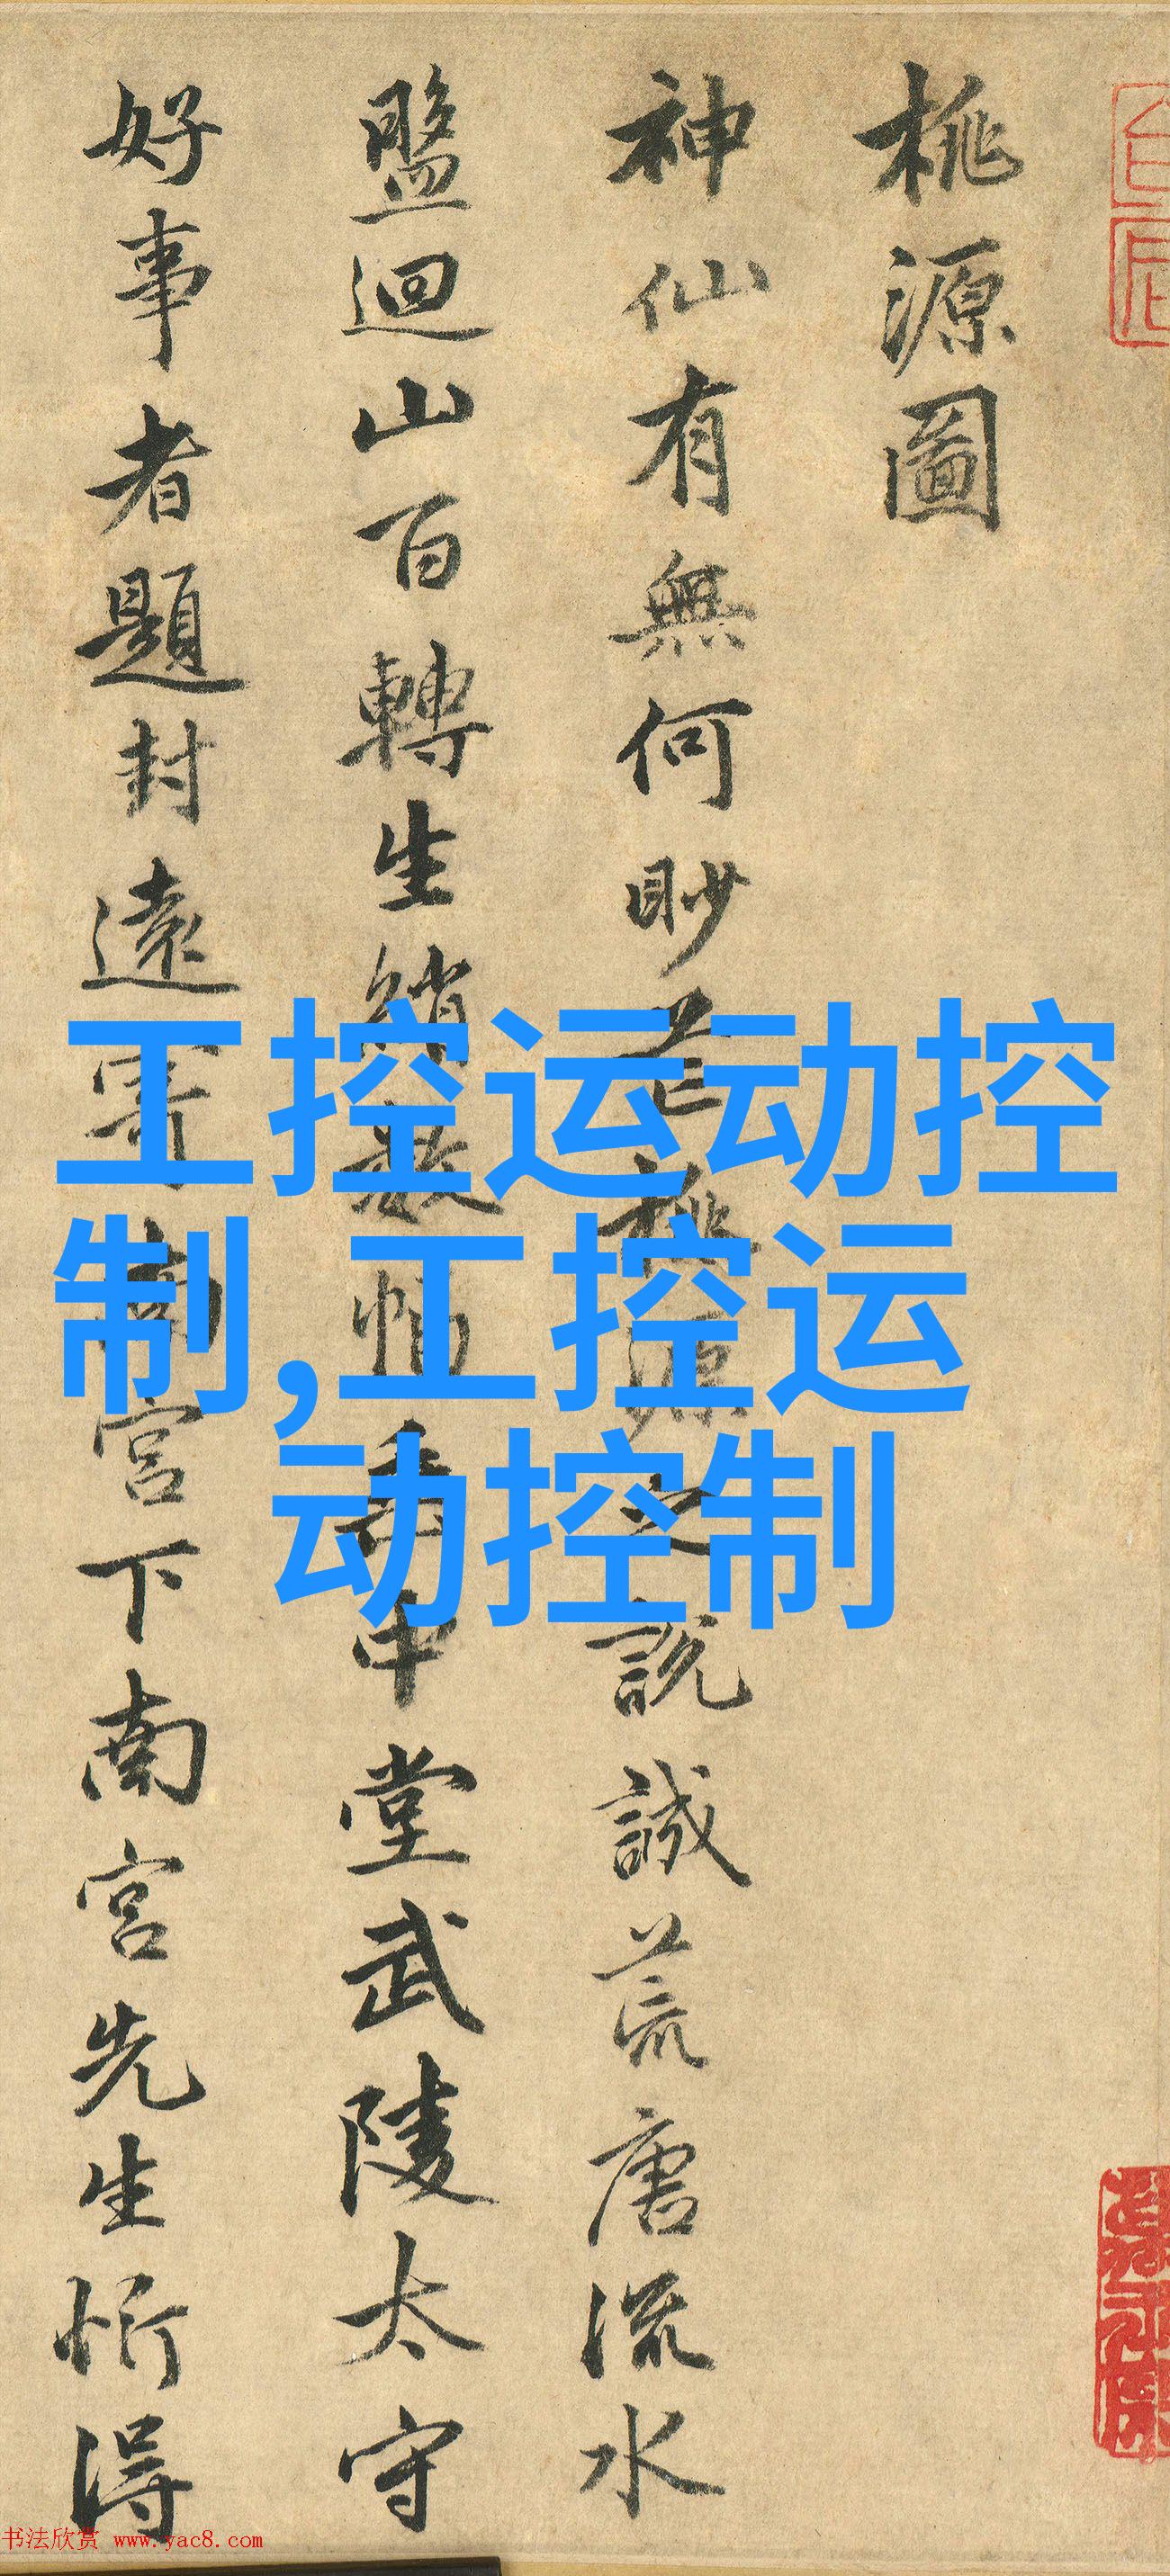 桃源圖
神仙有無何眇芒桃源之說誠荒唐流水
盤迴山百轉生綃數幅垂中堂武陵太守
好事者題封遠寄南宮下南宮先生忻得
工控运动控
制,工控运
动控制
书法欣赏 www.yac8.com